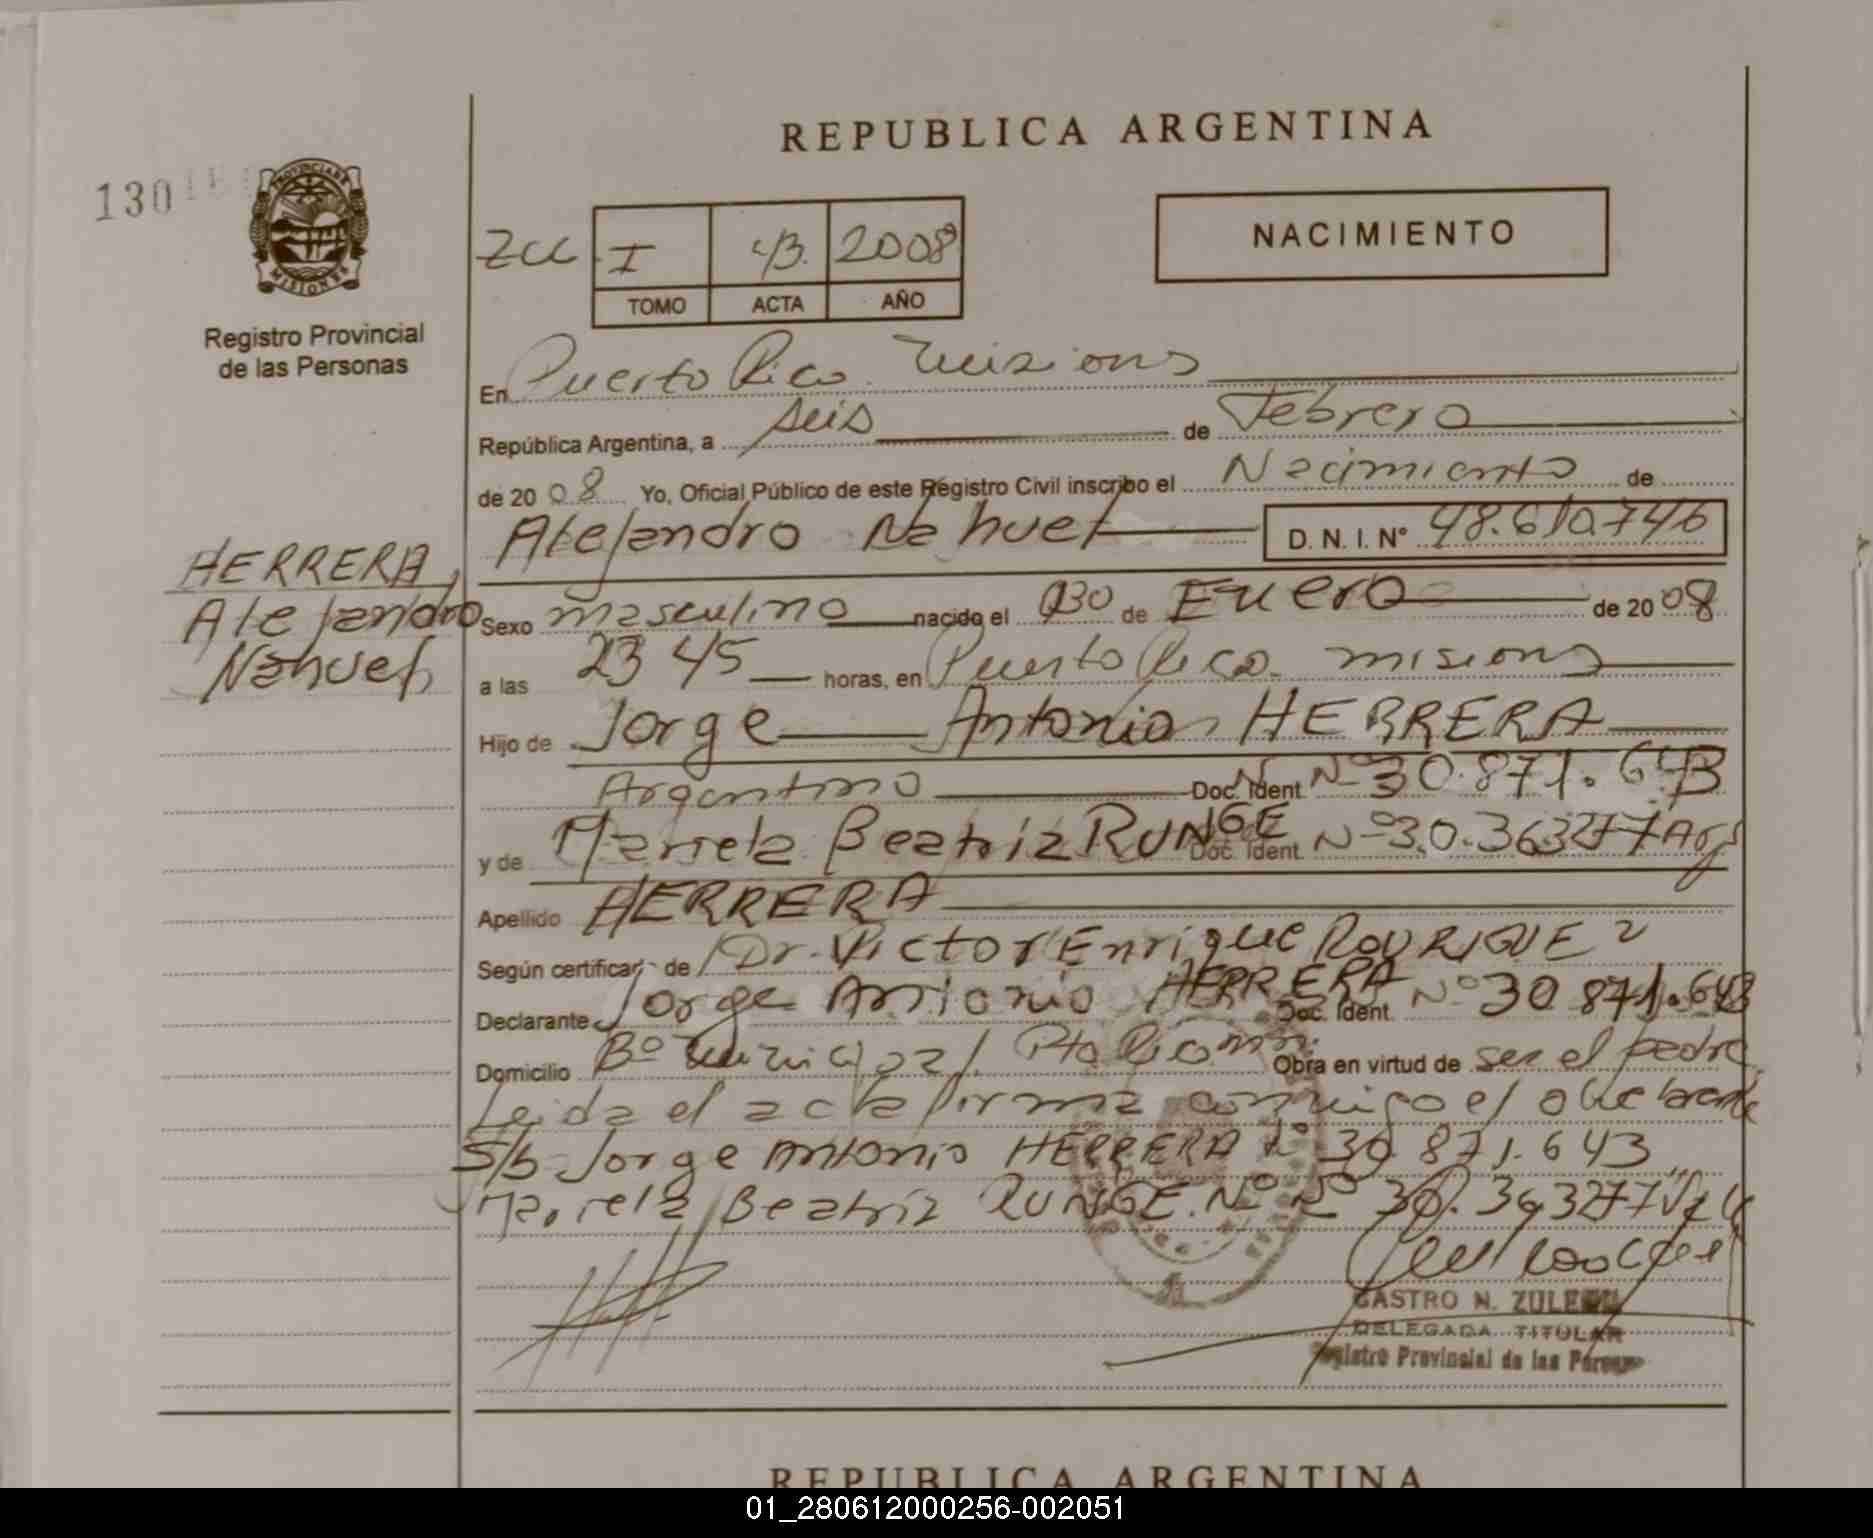 REPUBLICA ARGENTINA
130
PROVINCIA DE
MISIONES
Registro Provincial
de las Personas
NACIMIENTO
I 43. 2008
TOMO ACTA AÑO
En Puerto Rico. Misiones
República Argentina, a seis de Febrero
de 20 08 Yo, Oficial Público de este Registro Civil inscribo el Nacimiento de
Alejandro Nahuel D. N. I. Nº 48.610.746
HERRERA,
Alejandro
Nahuel
Sexo masculino nacido el 30 de Enero de 20 08
a las 23 45 horas, en Puerto Rico. misiones
Hijo de Jorge Antonio HERRERA
Argentino Doc. Ident. Nº 30.871.643
y de Mariela Beatriz RUNGE Doc. Ident. Nº 30.363277 Arg
Apellido HERRERA
Según certificad de Dr. Victor Enrique RODRIGUEZ
Declarante Jorge Antonio HERRERA Doc. Ident. Nº 30 871.643
Domicilio Bº Municipal. Pto Rico mn. Obra en virtud de ser el padre
Leida el acta firma conmigo el
S/b Jorge Antonio HERRERA Nº 30.871.643
Mariela Beatriz RUNGE. Nº 30.363277
CASTRO N.
DELEGADA TITULAR
Registro Provincial de las Personas
REPUBLICA ARGENTINA
01_280612000256-002051